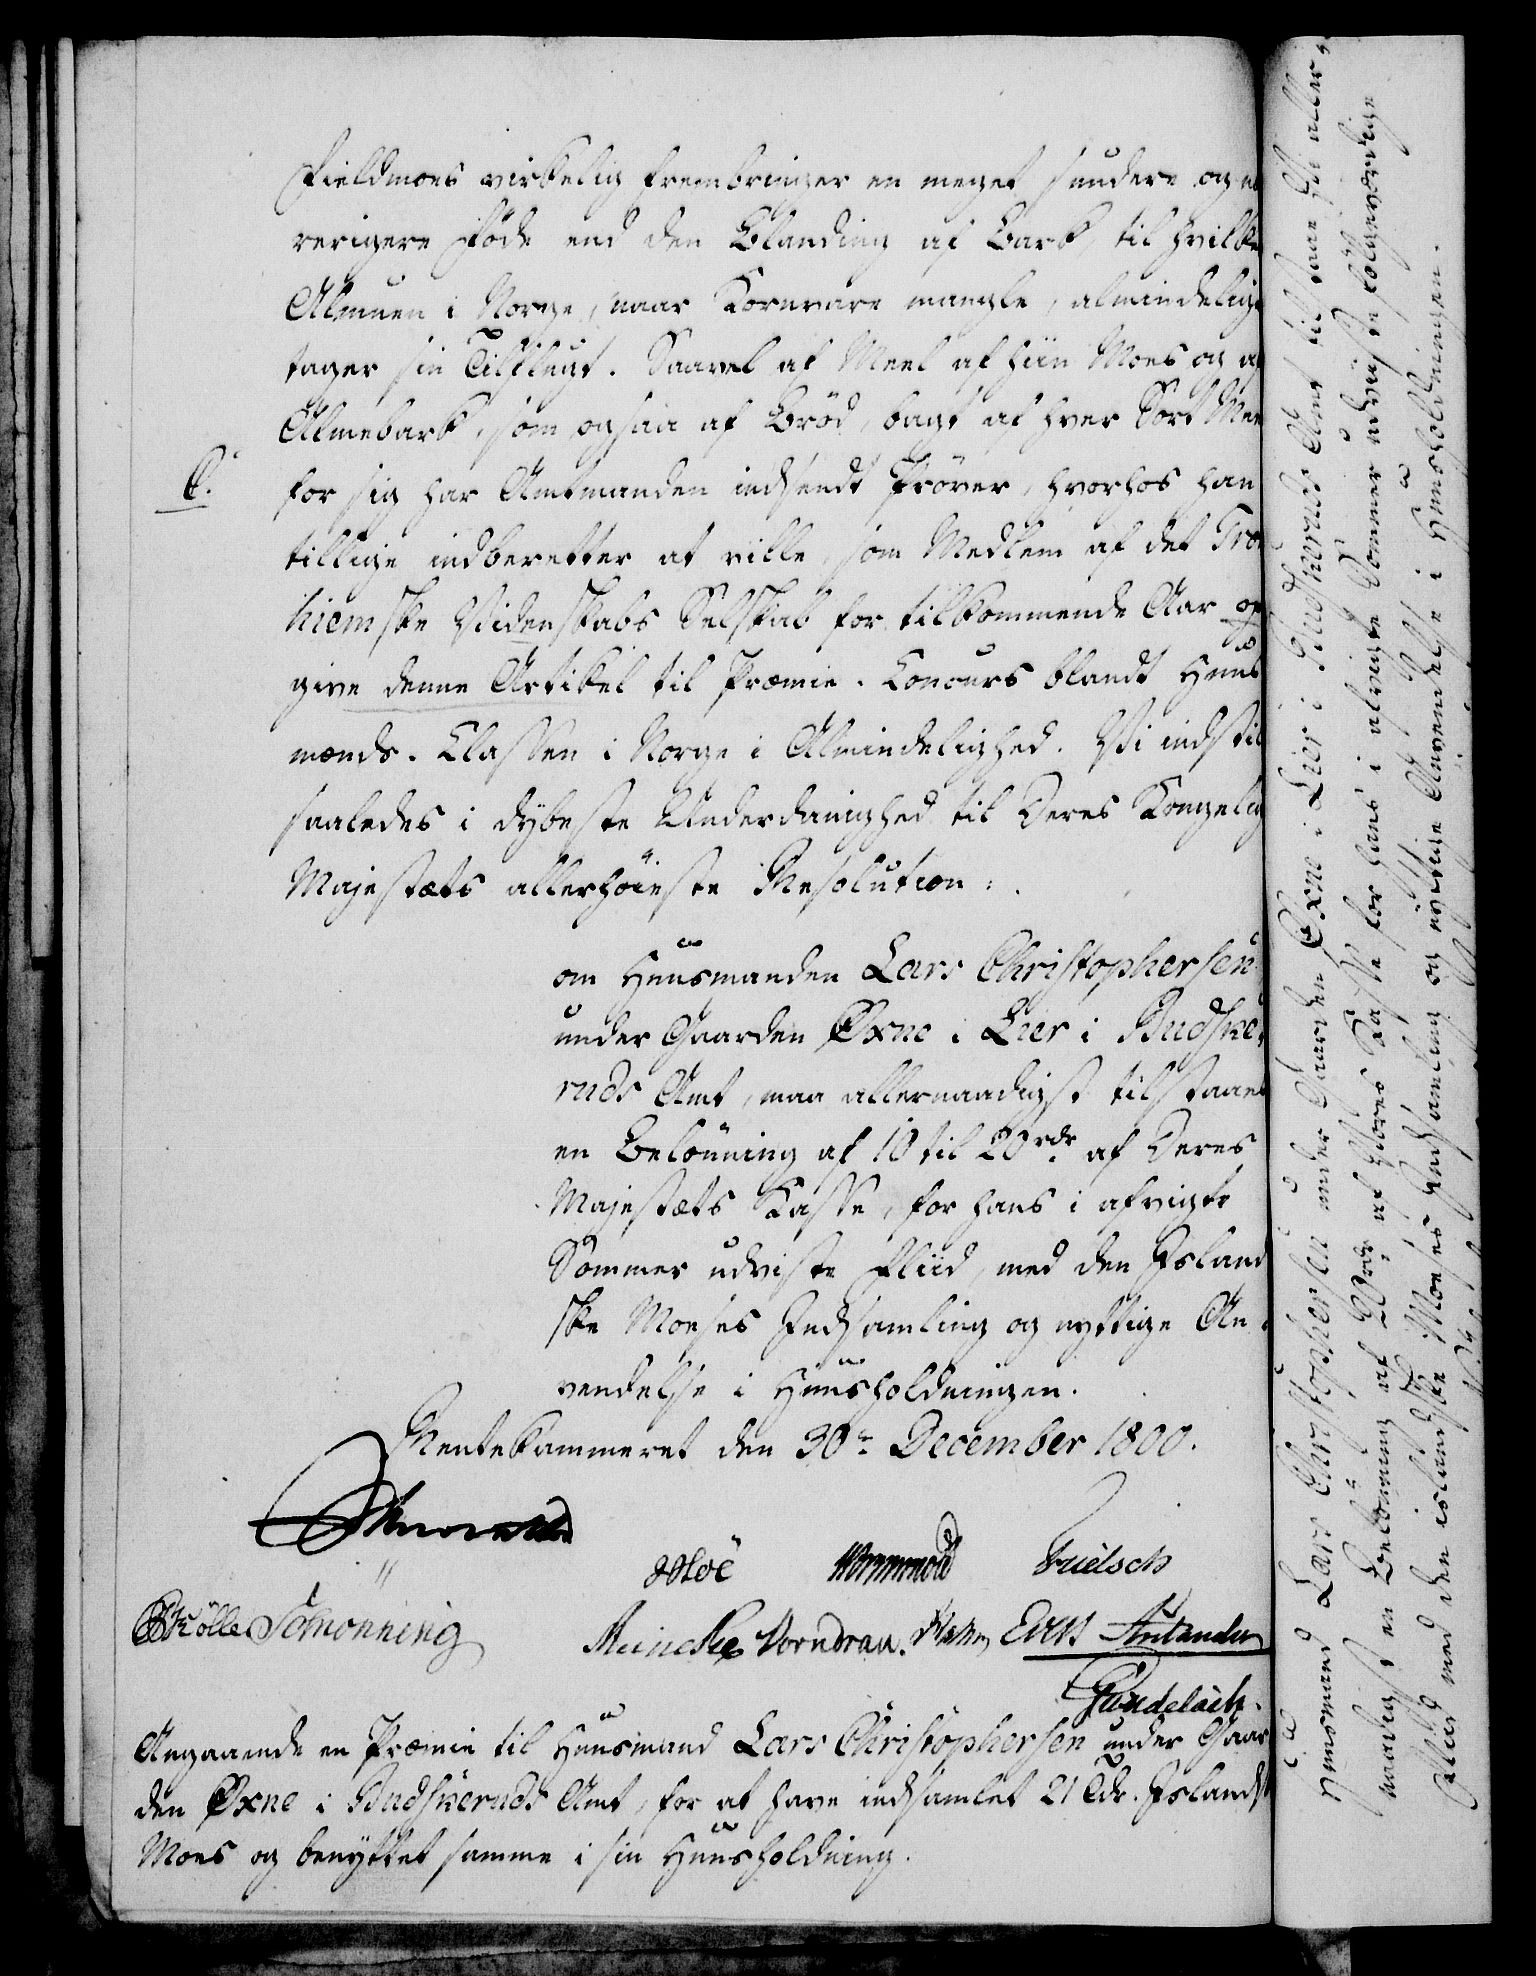 Fieldmoes virkelig frembringer en meget sundere og næ
rerigere Föde end den Blanding af Bark, til hvilken
Almuen i Norge, naar Kornvare mangle, almindelig
tager sin Tilflugt. Saavel af Meel af hün Moes og af
Almebark, som ogsaa af Bröd, bagt af hver Sort Meel
C.
for sig har Amtmanden indsendt Pröver, hvorhos han
tillige indberetter at ville, som Medlem af det Tron
hiemske Videnskabs Selskab for tilkommende Aar op
give denne Artikel til Præmie-Concurs blandt Huus
mænds-Classen i Norge i Almindelighed. Vi indstil
saaledes i dybeste Underdanighed til Deres Kongelig
Majestæts allerhöieste Resolution:
om Huusmanden Lars Christophersen
under Gaarden Oxne i Lier i Budske,
ruds Amt, maa allernaadigst tilstaaes
en Belönning af 10 til 20 rdr af Deres
Majestæts Kasse, for hans i afvigte
Sommer udviste Fliid, med den Island
ske Moeses Indsamling og nyttige An-
vendelse i Huusholdningen.
Rentekammeret den 30te December 1800.
Hoë Wormwold Fuelsch
Kölle Schönning Meincke Vorndran.
Gundelach.
Angaaende en Præmie til Huusmand Lars Christophersen under Gaar
den Oxne i Budskeruds Amt, for at have indsamlet 21 Tdr. Islandsk
Moes og benyttet samme i sin Huusholdning.
Huusmand Lars Christophersen under Gaarden Oxne i Lier i Budskeruds Amt tilstaae Vi aller,
naadigst en Belönning af 20 rdr af Vores Kasse for hans i afvigte Sommer udviste
Fliid med den islandske Moeses Indsamling og nyttige Anvendelse i Huusholdningen.